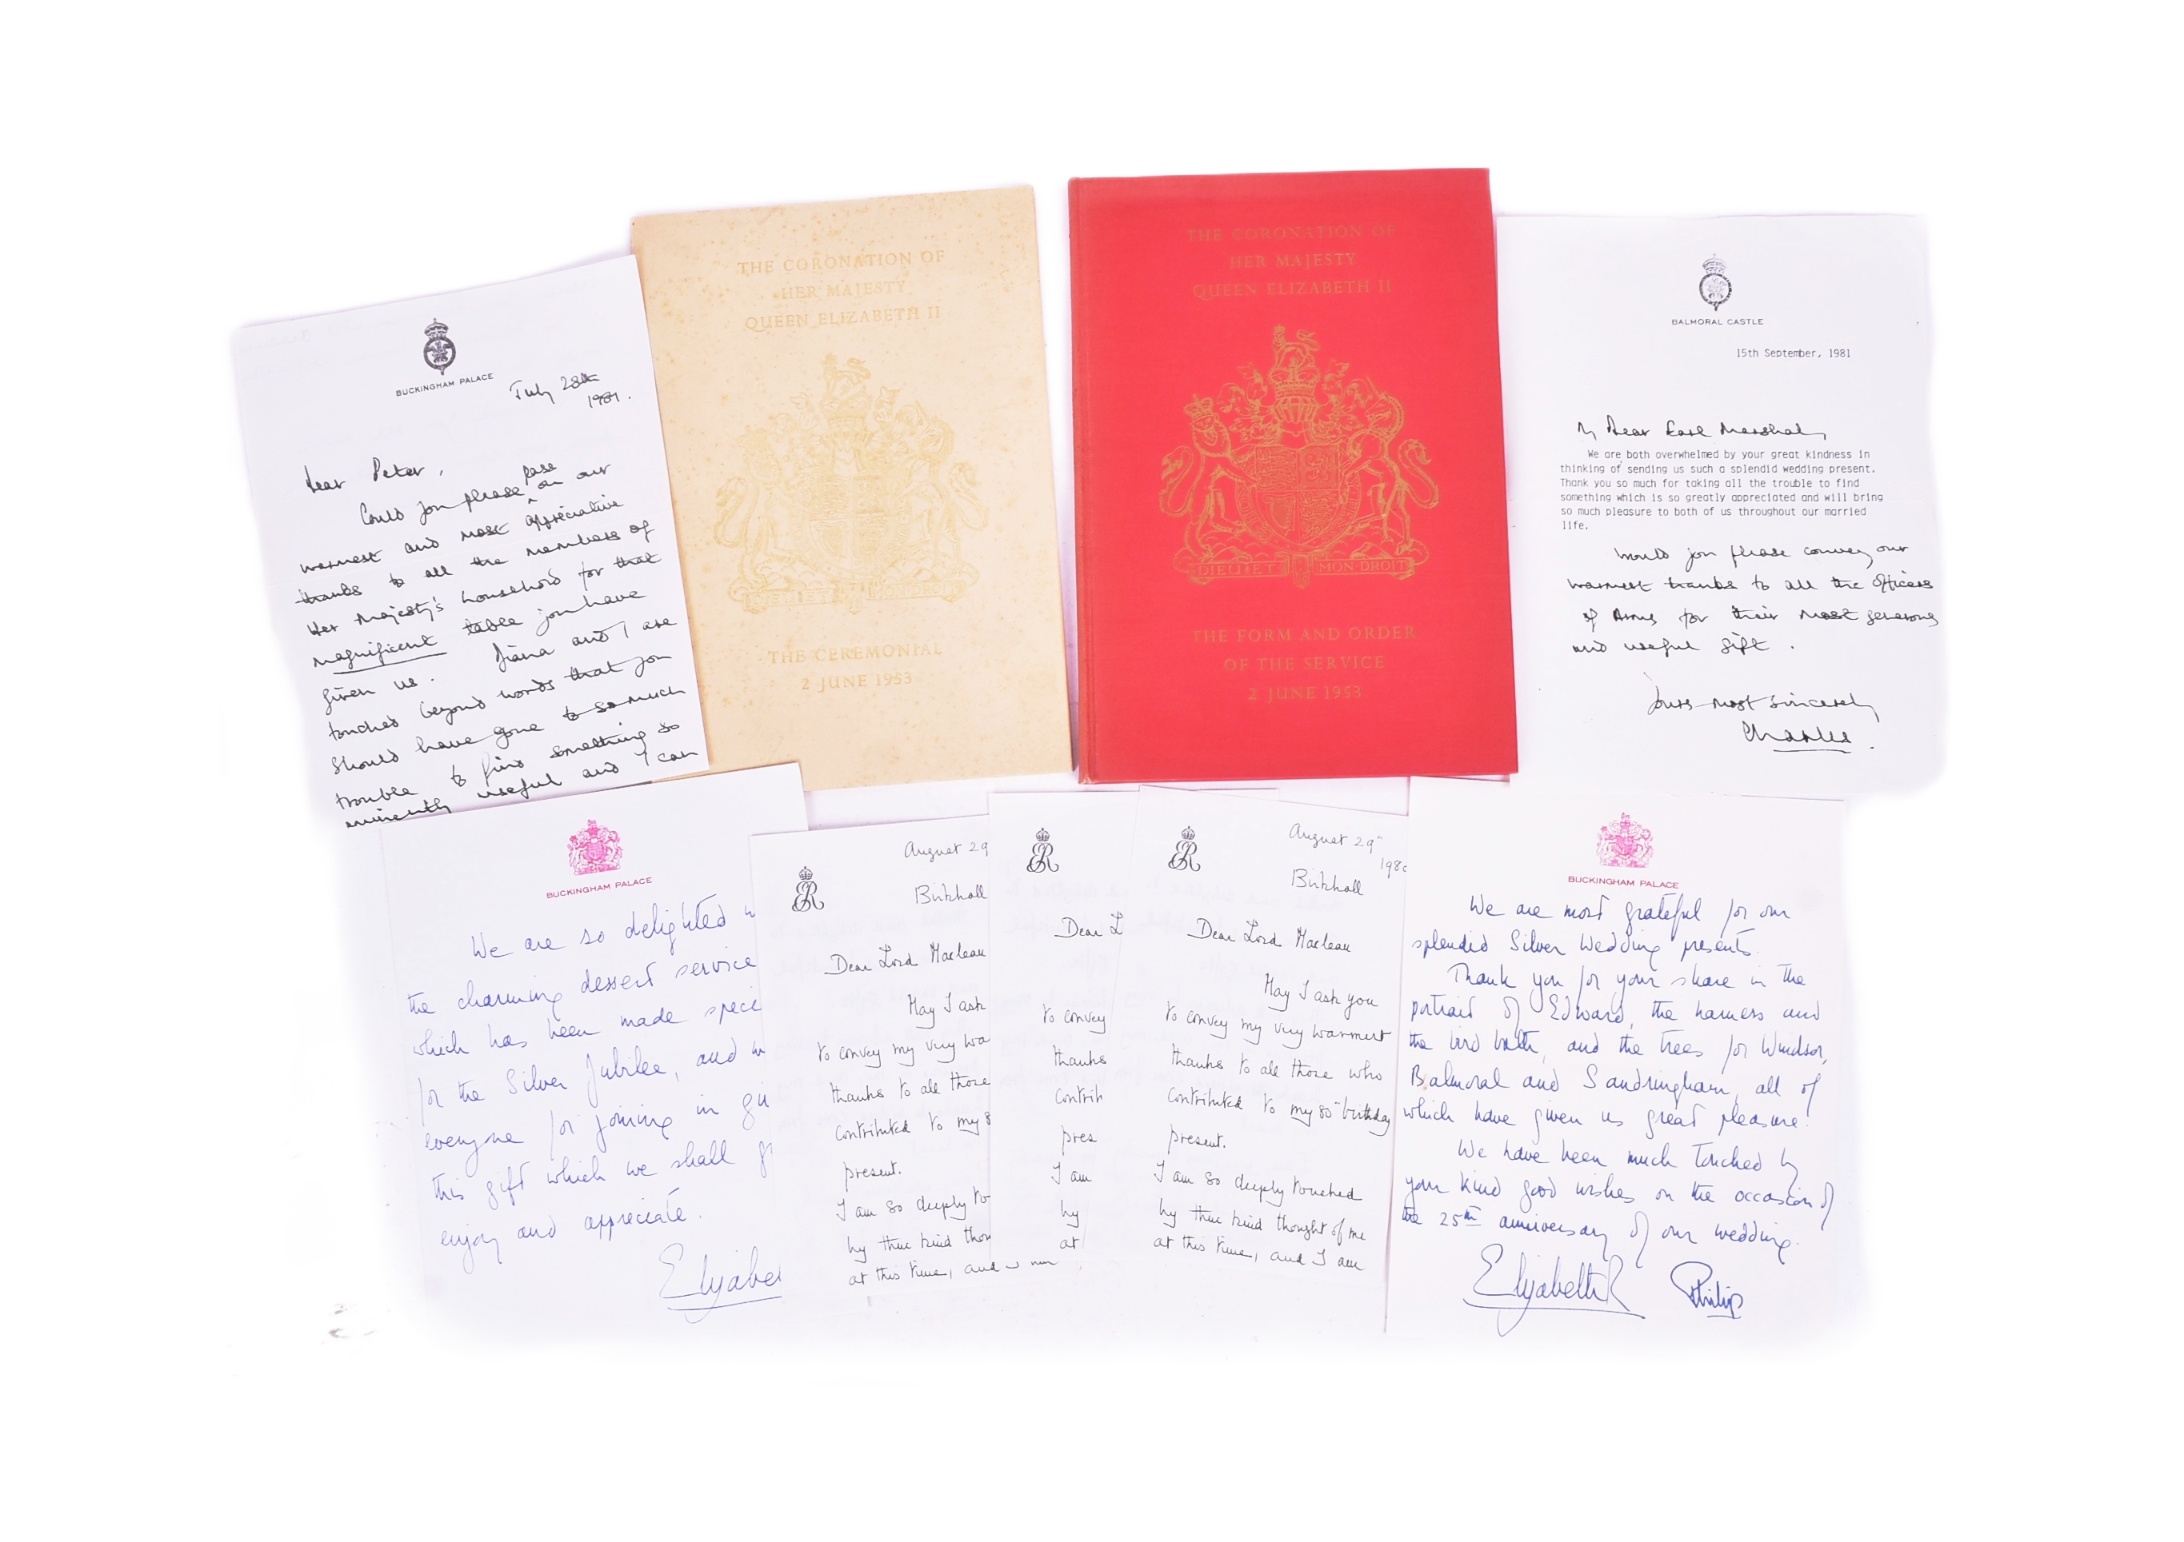 BUCKINGHAM PALACE
July 28th
1981.
Dear Peter,
Could you please pass on our
warmest and most appreciative
thanks to all the members of
Her Majesty's household for that
magnificent table you have
given us. Diana and I are
touched beyond words that you
should have gone to so much
trouble to find something so
useful and I can
THE CORONATION OF
HER MAJESTY
QUEEN ELIZABETH II
DIEU ET MON DROIT
THE CEREMONIAL
2 JUNE 1953
THE CORONATION OF
HER MAJESTY
QUEEN ELIZABETH II
DIEU ET MON DROIT
THE FORM AND ORDER
OF THE SERVICE
2 JUNE 1953
BALMORAL CASTLE
15th September, 1981
My Dear Earl Marshal,
We are both overwhelmed by your great kindness in
thinking of sending us such a splendid wedding present.
Thank you so much for taking all the trouble to find
something which is so greatly appreciated and will bring
so much pleasure to both of us throughout our married
life.
Would you please convey our
warmest thanks to all the Officers
of Arms for their most generous
and useful gift.
Yours most sincerely
Charles.
BUCKINGHAM PALACE
We are so delighted
the charming dessert service
which has been made speci
for the Silver Jubilee, and
everyone for joining in gi
this gift which we shall
enjoy and appreciate.
Elizabe
ER
August 29
Birkhall
Dear Lord Maclean
May I ask
to convey my very wa
thanks to all those
contributed to my 8
present.
I am so deeply to
by this kind thou
at this time, and
ER
Dear L
to convey
thanks
contrib
pres
I am
by
at
ER
August 29th
198
Birkhall
Dear Lord Maclean
May I ask you
to convey my very warmest
thanks to all those who
contributed to my 80th birthday
present.
I am so deeply touched
by this kind thought of me
at this time, and I am
BUCKINGHAM PALACE
We are most grateful for our
splendid Silver Wedding presents.
Thank you for your share in the
portrait of Edward, the harness and
the bird bath, and the trees for Windsor,
Balmoral and Sandringham, all of
which have given us great pleasure.
We have been much touched by
your kind good wishes on the occasion of
the 25th anniversary of our wedding.
Elizabeth R Philip